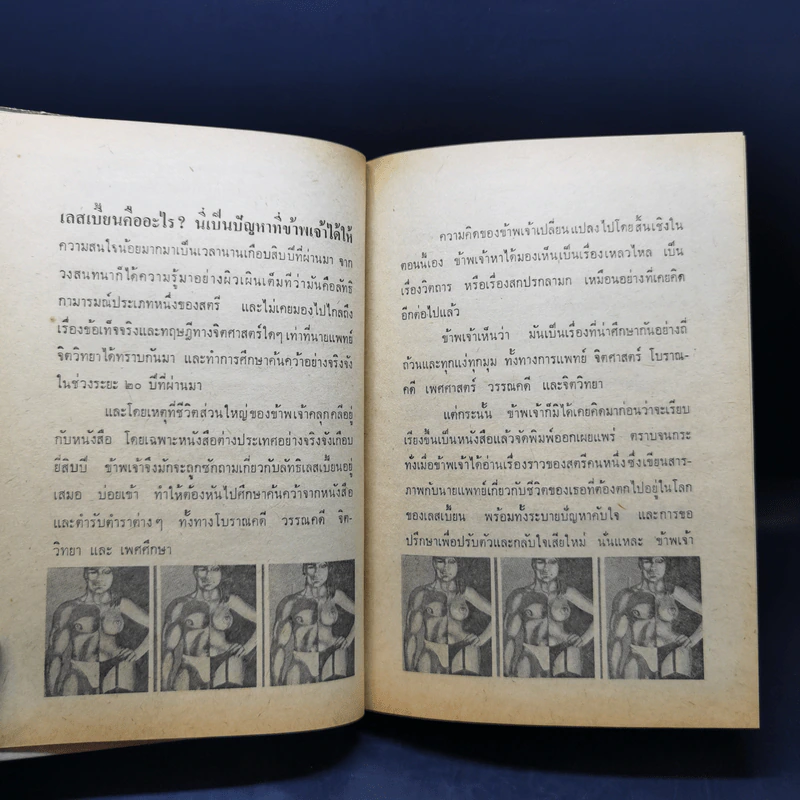 เลสเบี้ยนคืออะไร? นี่เป็นปัญหาที่ข้าพเจ้าได้ให้
ความสนใจน้อยมากมาเป็นเวลานานเกือบสิบปีที่ผ่านมา จาก
วงสนทนาก็ได้ความรู้มาอย่างผิวเผินเต็มทีว่ามันคือลัทธิ
กามารมณ์ประเภทหนึ่งของสตรี และไม่เคยมองไปไกลถึง
เรื่องข้อเท็จจริงและทฤษฎีทางจิตศาสตร์ใดๆ เท่าที่นายแพทย์
จิตวิทยาได้ทราบกันมา และทำการศึกษาค้นคว้าอย่างจริงจัง
ในช่วงระยะ ๒๐ ปีที่ผ่านมา
และโดยเหตุที่ชีวิตส่วนใหญ่ของข้าพเจ้าคลุกคลีอยู่
กับหนังสือ โดยเฉพาะหนังสือต่างประเทศอย่างจริงจังเกือบ
ยี่สิบปี ข้าพเจ้าจึงมักจะถูกซักถามเกี่ยวกับลัทธิเลสเบี้ยนอยู่
เสมอ บ่อยเข้า ทำให้ต้องหันไปศึกษาค้นคว้าจากหนังสือ
และตำรับตำราต่างๆ ทั้งทางโบราณคดี วรรณคดี จิต-
วิทยา และ เพศศึกษา
ความคิดของข้าพเจ้าเปลี่ยนแปลงไปโดยสิ้นเชิงใน
ตอนนี้เอง ข้าพเจ้าหาได้มองเห็นเป็นเรื่องเหลวไหล เป็น
เรื่องวิตถาร หรือเรื่องสกปรกลามก เหมือนอย่างที่เคยคิด
อีกต่อไปแล้ว
ข้าพเจ้าเห็นว่า มันเป็นเรื่องที่น่าศึกษากันอย่างถี่
ถ้วนและทุกแง่ทุกมุม ทั้งทางการแพทย์ จิตศาสตร์ โบราณ-
คดี เพศศาสตร์ วรรณคดี และจิตวิทยา
แต่กระนั้น ข้าพเจ้าก็มิได้เคยคิดมาก่อนว่าจะเรียบ
เรียงขึ้นเป็นหนังสือแล้วจัดพิมพ์ออกเผยแพร่ ตราบจนกระ
ทั่งเมื่อข้าพเจ้าได้อ่านเรื่องราวของสตรีคนหนึ่งซึ่งเขียนสาร-
ภาพกับนายแพทย์เกี่ยวกับชีวิตของเธอที่ต้องตกไปอยู่ในโลก
ของเลสเบี้ยน พร้อมทั้งระบายปัญหาคับใจ และการขอ
ปรึกษาเพื่อปรับตัวและกลับใจเสียใหม่ นั่นแหละ ข้าพเจ้า